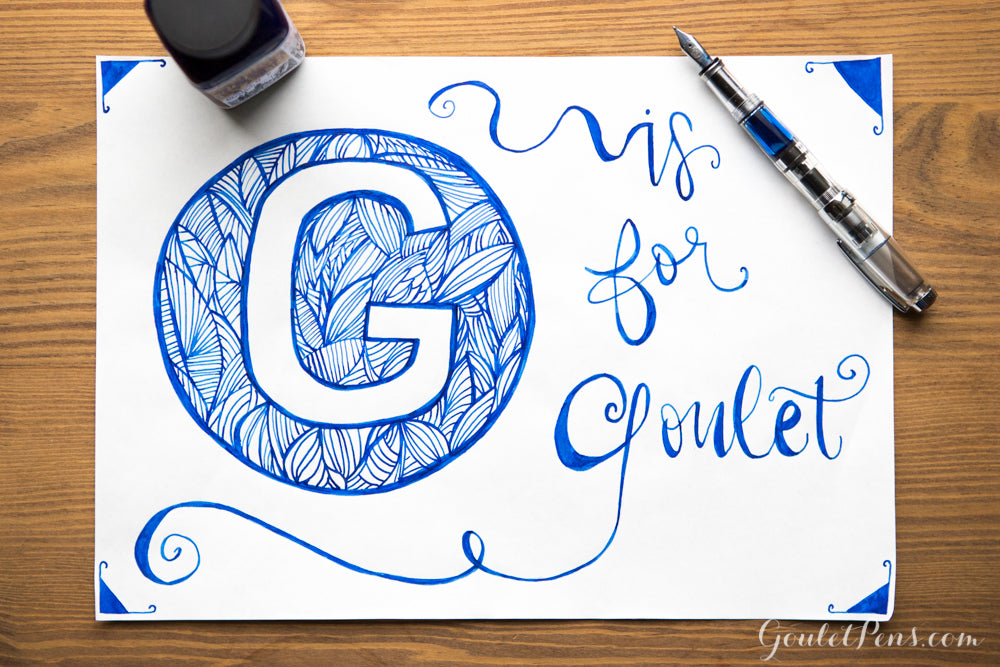 G is
for
Goulet
GouletPens.com